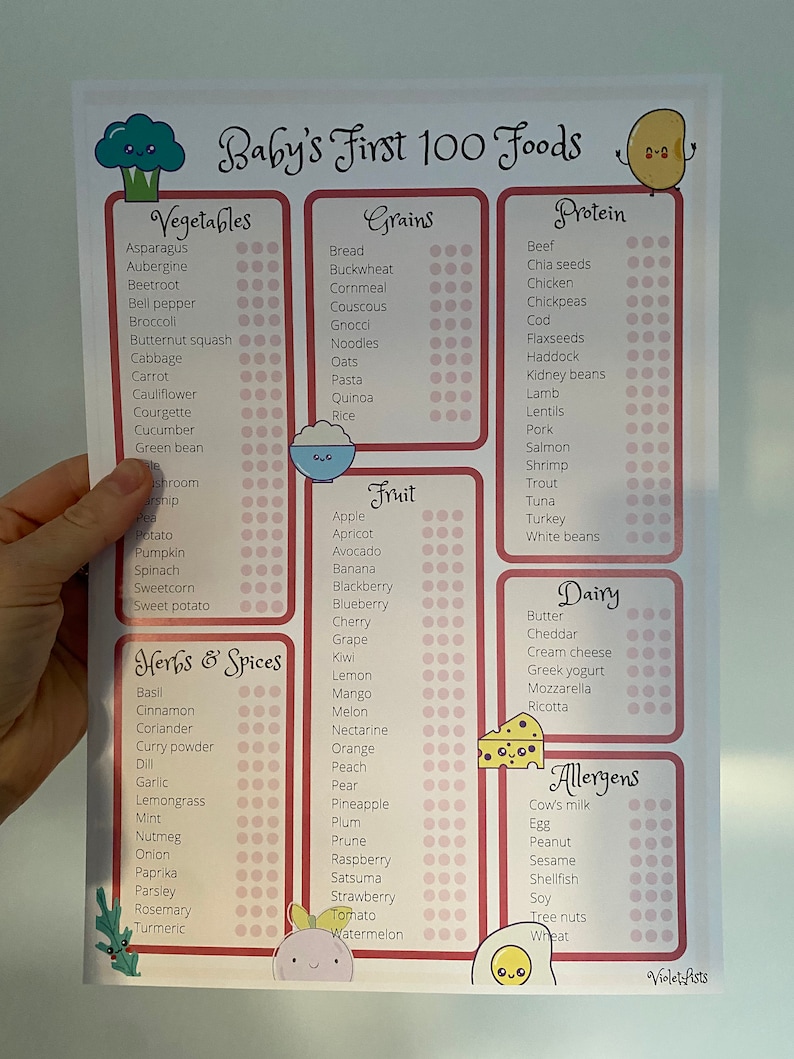 Baby's First 100 Foods
Vegetables
Asparagus
Aubergine
Beetroot
Bell pepper
Broccoli
Butternut squash
Cabbage
Carrot
Cauliflower
Courgette
Cucumber
Green bean
Pea
Potato
Pumpkin
Spinach
Sweetcorn
Sweet potato
Herbs & Spices
Basil
Cinnamon
Coriander
Curry powder
Dill
Garlic
Lemongrass
Mint
Nutmeg
Onion
Paprika
Parsley
Rosemary
Turmeric
Grains
Bread
Buckwheat
Cornmeal
Couscous
Gnocci
Noodles
Oats
Pasta
Quinoa
Rice
Fruit
Apple
Apricot
Avocado
Banana
Blackberry
Blueberry
Cherry
Grape
Kiwi
Lemon
Mango
Melon
Nectarine
Orange
Peach
Pear
Pineapple
Plum
Prune
Raspberry
Satsuma
Strawberry
Tomato
Watermelon
Protein
Beef
Chia seeds
Chicken
Chickpeas
Cod
Flaxseeds
Haddock
Kidney beans
Lamb
Lentils
Pork
Salmon
Shrimp
Trout
Tuna
Turkey
White beans
Dairy
Butter
Cheddar
Cream cheese
Greek yogurt
Mozzarella
Ricotta
Allergens
Cow's milk
Egg
Peanut
Sesame
Shellfish
Soy
Tree nuts
Wheat
VioletLists